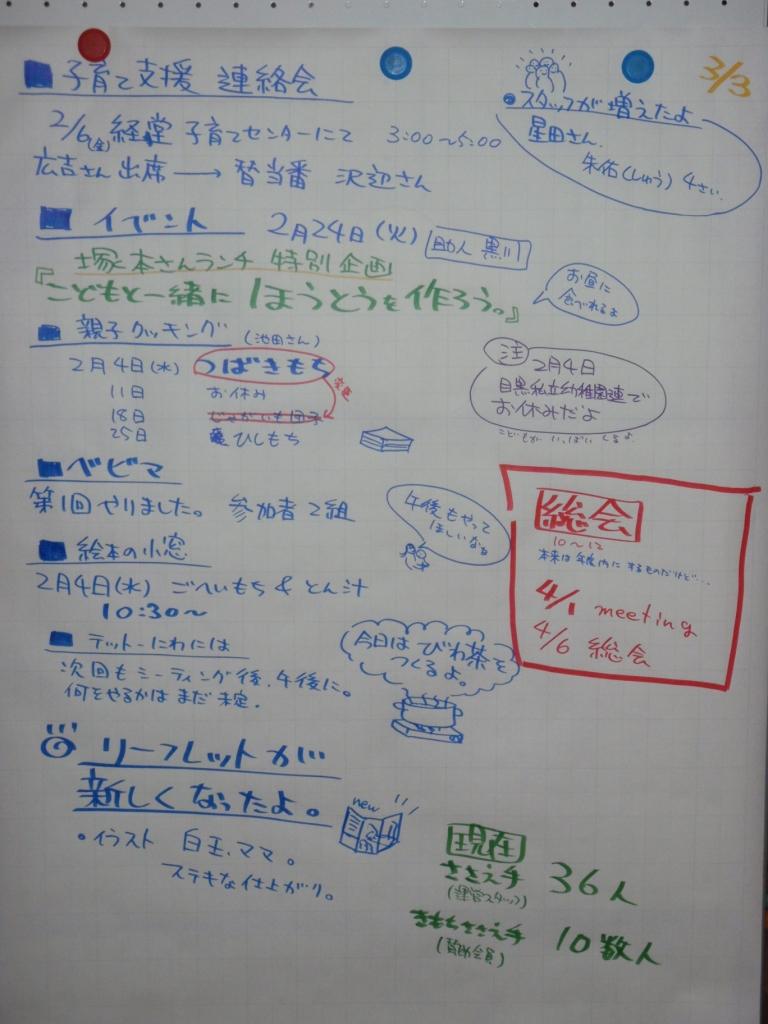 3/3
■子育て支援 連絡会
2/6(金)経堂子育てセンターにて 3:00〜5:00
広吉さん出席→替当番 沢辺さん
・スタッフが増えたよ
星田さん、
朱佑(しゅう)4さい
■イベント 2月24日(火) 助人 黒川
塚本さんランチ 特別企画
『こどもと一緒に ほうとうを作ろう。』
お昼に
食べれるよ
■親子クッキング(池田さん)
2月4日(水) つばきもち
変更
11日 お休み
18日 じゃがいも団子
25日 ひしもち
注 2月4日
目黒私立幼稚園連で
お休みだよ
こどもがいっぱいくるよ
■ベビマ
第1回やりました。 参加者2組
午後もやって
ほしいなぁ
■絵本の小窓
2月4日(水) ごへいもち&とん汁
10:30〜
総会
10〜12
本来は年度内にするものだけど…
4/1 meeting
4/6 総会
■テットーにわには
次回もミーティング後、午後に。
何をやるかはまだ未定.
今日はびわ茶を
つくるよ。
リーフレットが
新しくなったよ。
new
・イラスト 白玉、ママ。
ステキな仕上がり。
現在
ささえ手 36人
(運営スタッフ)
きもちささえ手 10数人
(賛助会員)